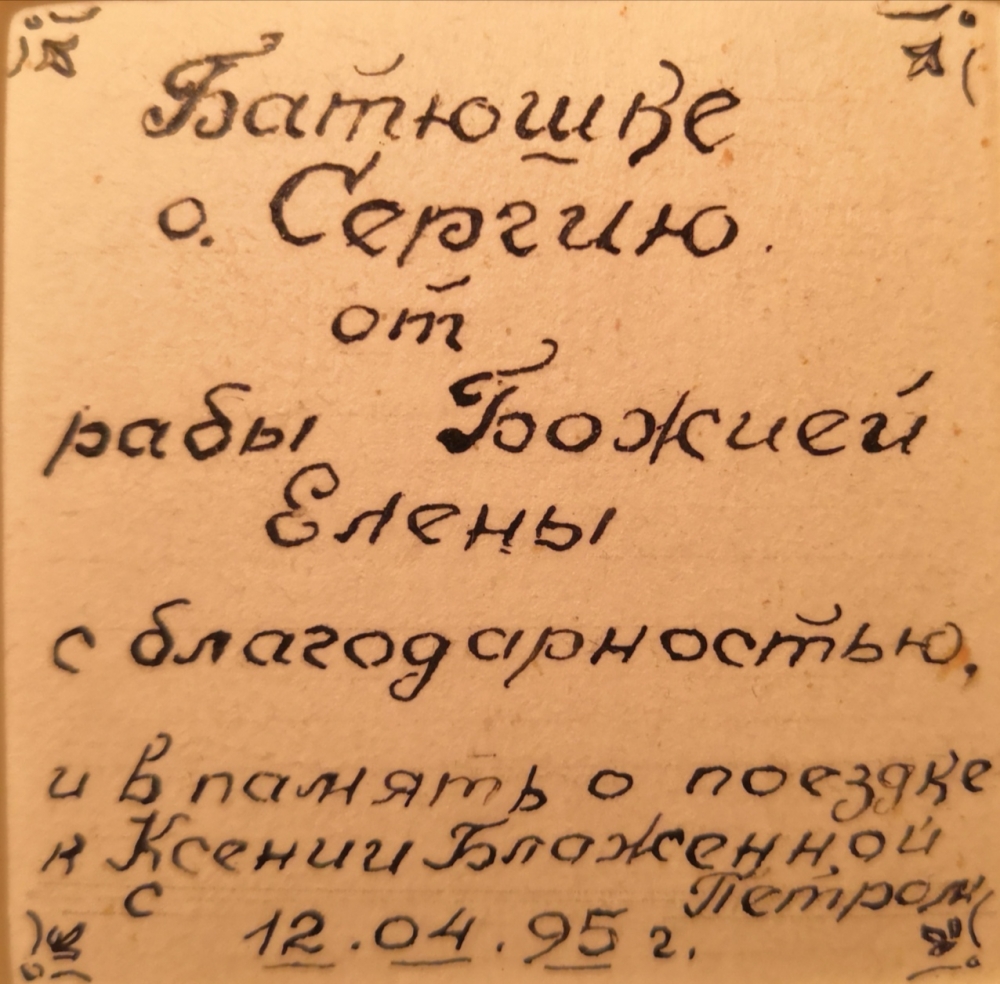 Батюшке
о. Сергию.
от
рабы Божией
Елены
с благодарностью,
и в память о поездке
к Ксении Блаженной
с Петром
12.04.95 г.